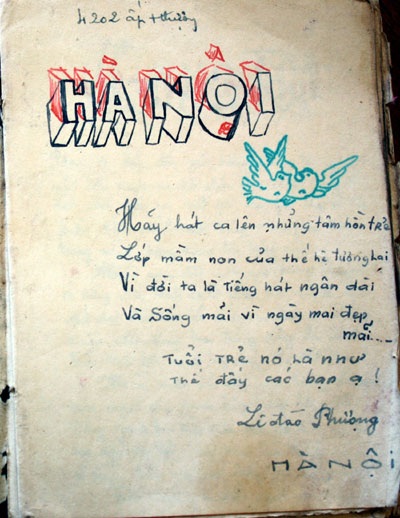 4202 ấp + thượng
HÀ NỘI
Hãy hát ca lên những tâm hồn TRẺ
Lớp mầm non của thế hệ tương lai
Vì đời ta là tiếng hát ngân dài
Và Sống mãi vì ngày mai đẹp
mãi....
TUỔI TRẺ NÓ LÀ NHƯ
THẾ ĐẤY CÁC BẠN Ạ !
Phượng
HÀ NỘI